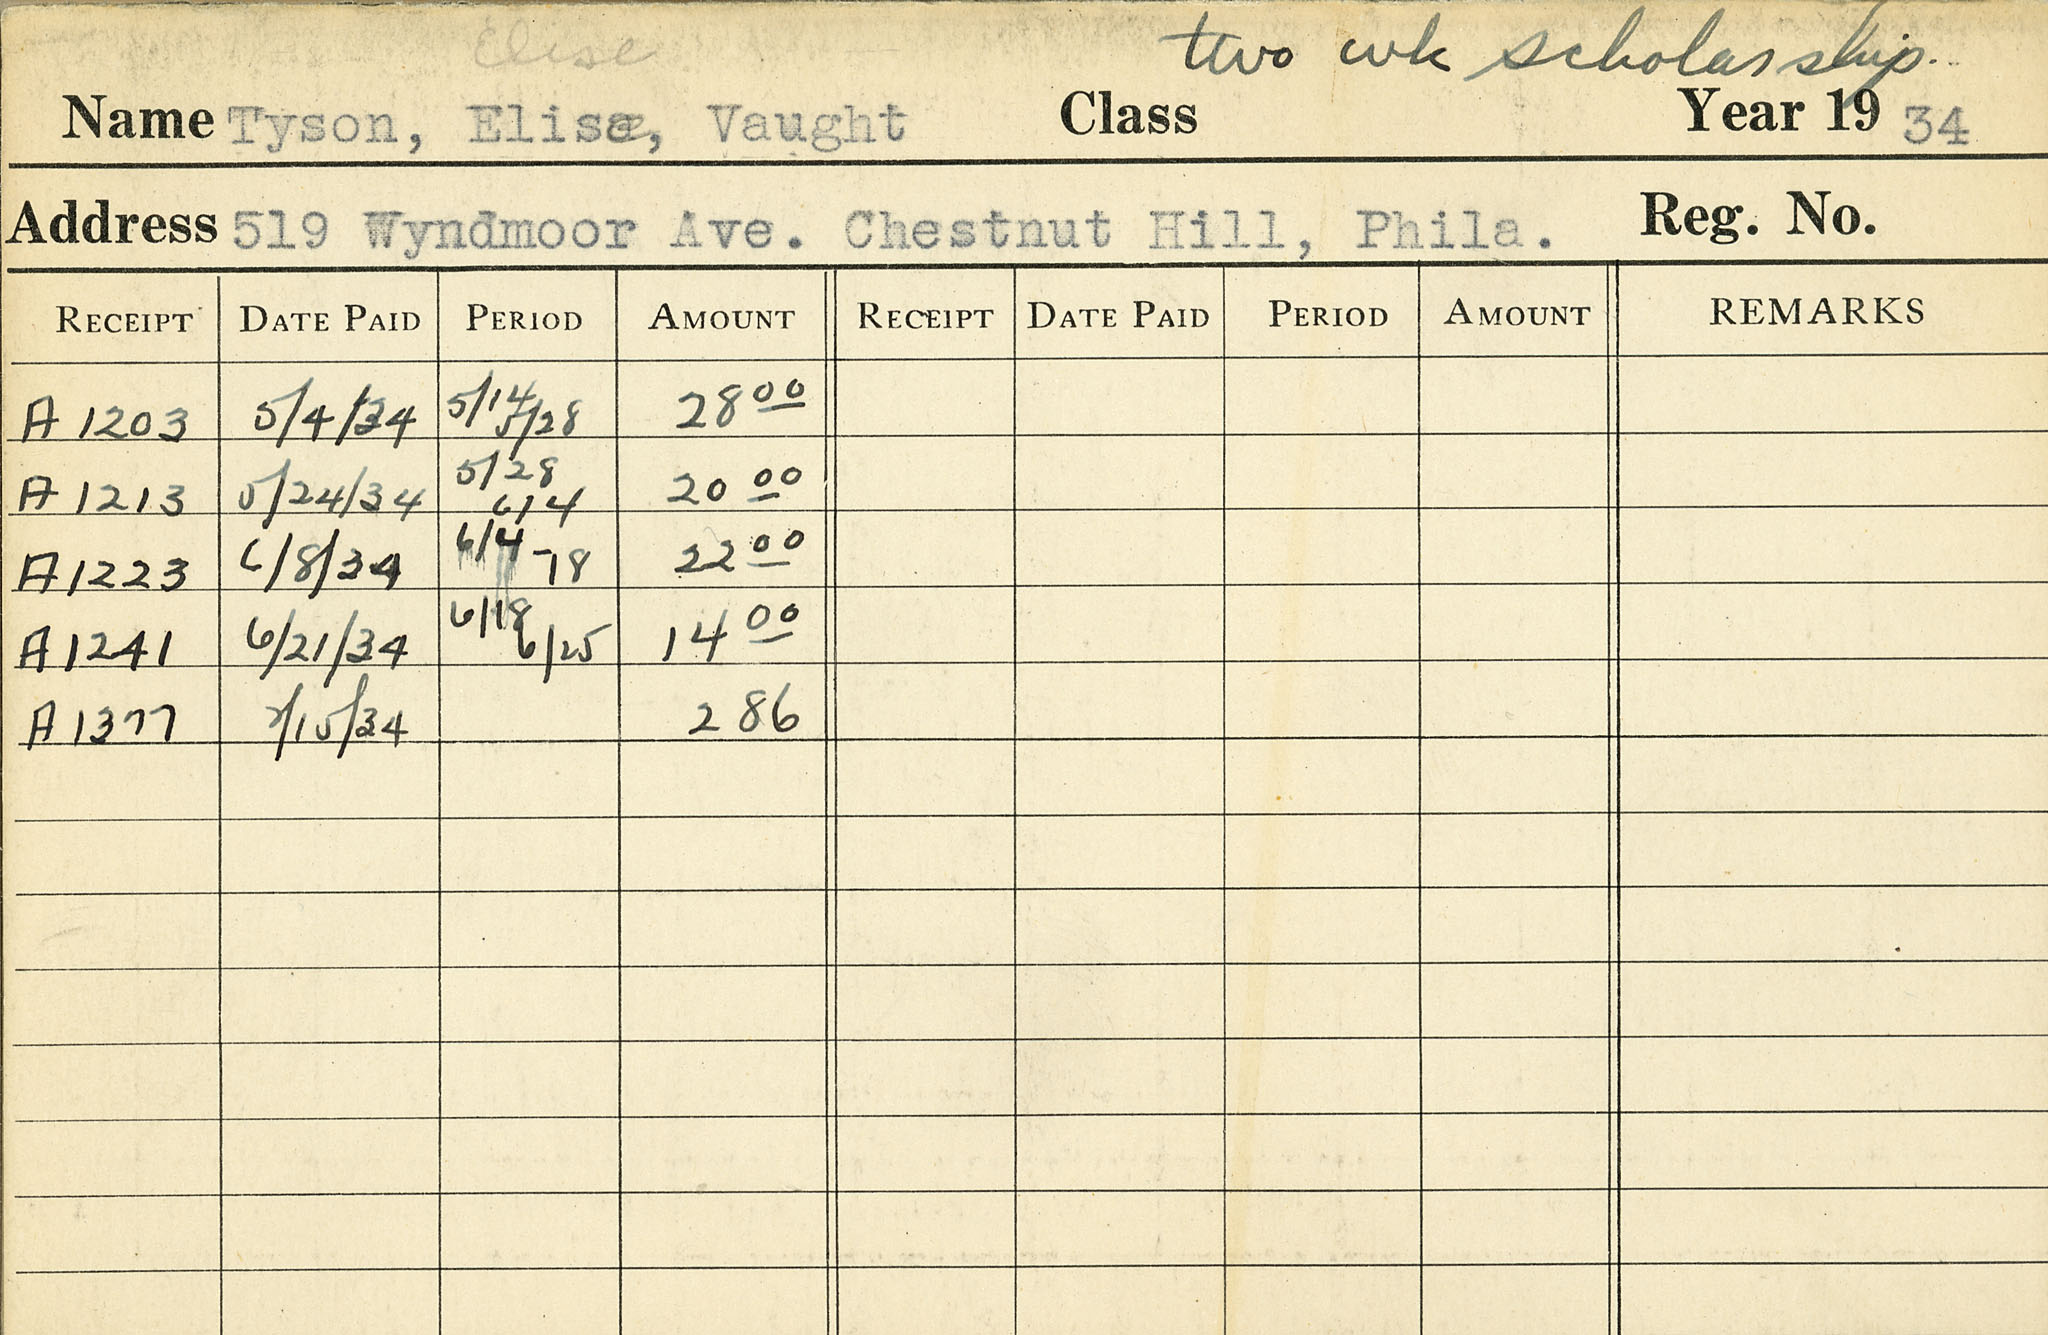 Elise two wk scholarship.
Name Tyson, Elise, Vaught Class Year 19 34
Address 519 Wyndmoor Ave. Chestnut Hill, Phila. Reg. No.
RECEIPT DATE PAID PERIOD AMOUNT RECEIPT DATE PAID PERIOD AMOUNT REMARKS
A 1203 5/4/34 5/14 5/28 28 00
A 1213 5/24/34 5/28 6/4 20 00
A 1223 6/8/34 6/4 -18 22 00
A 1241 6/21/34 6/18 6/25 14 00
A 1377 /15/34 2 86